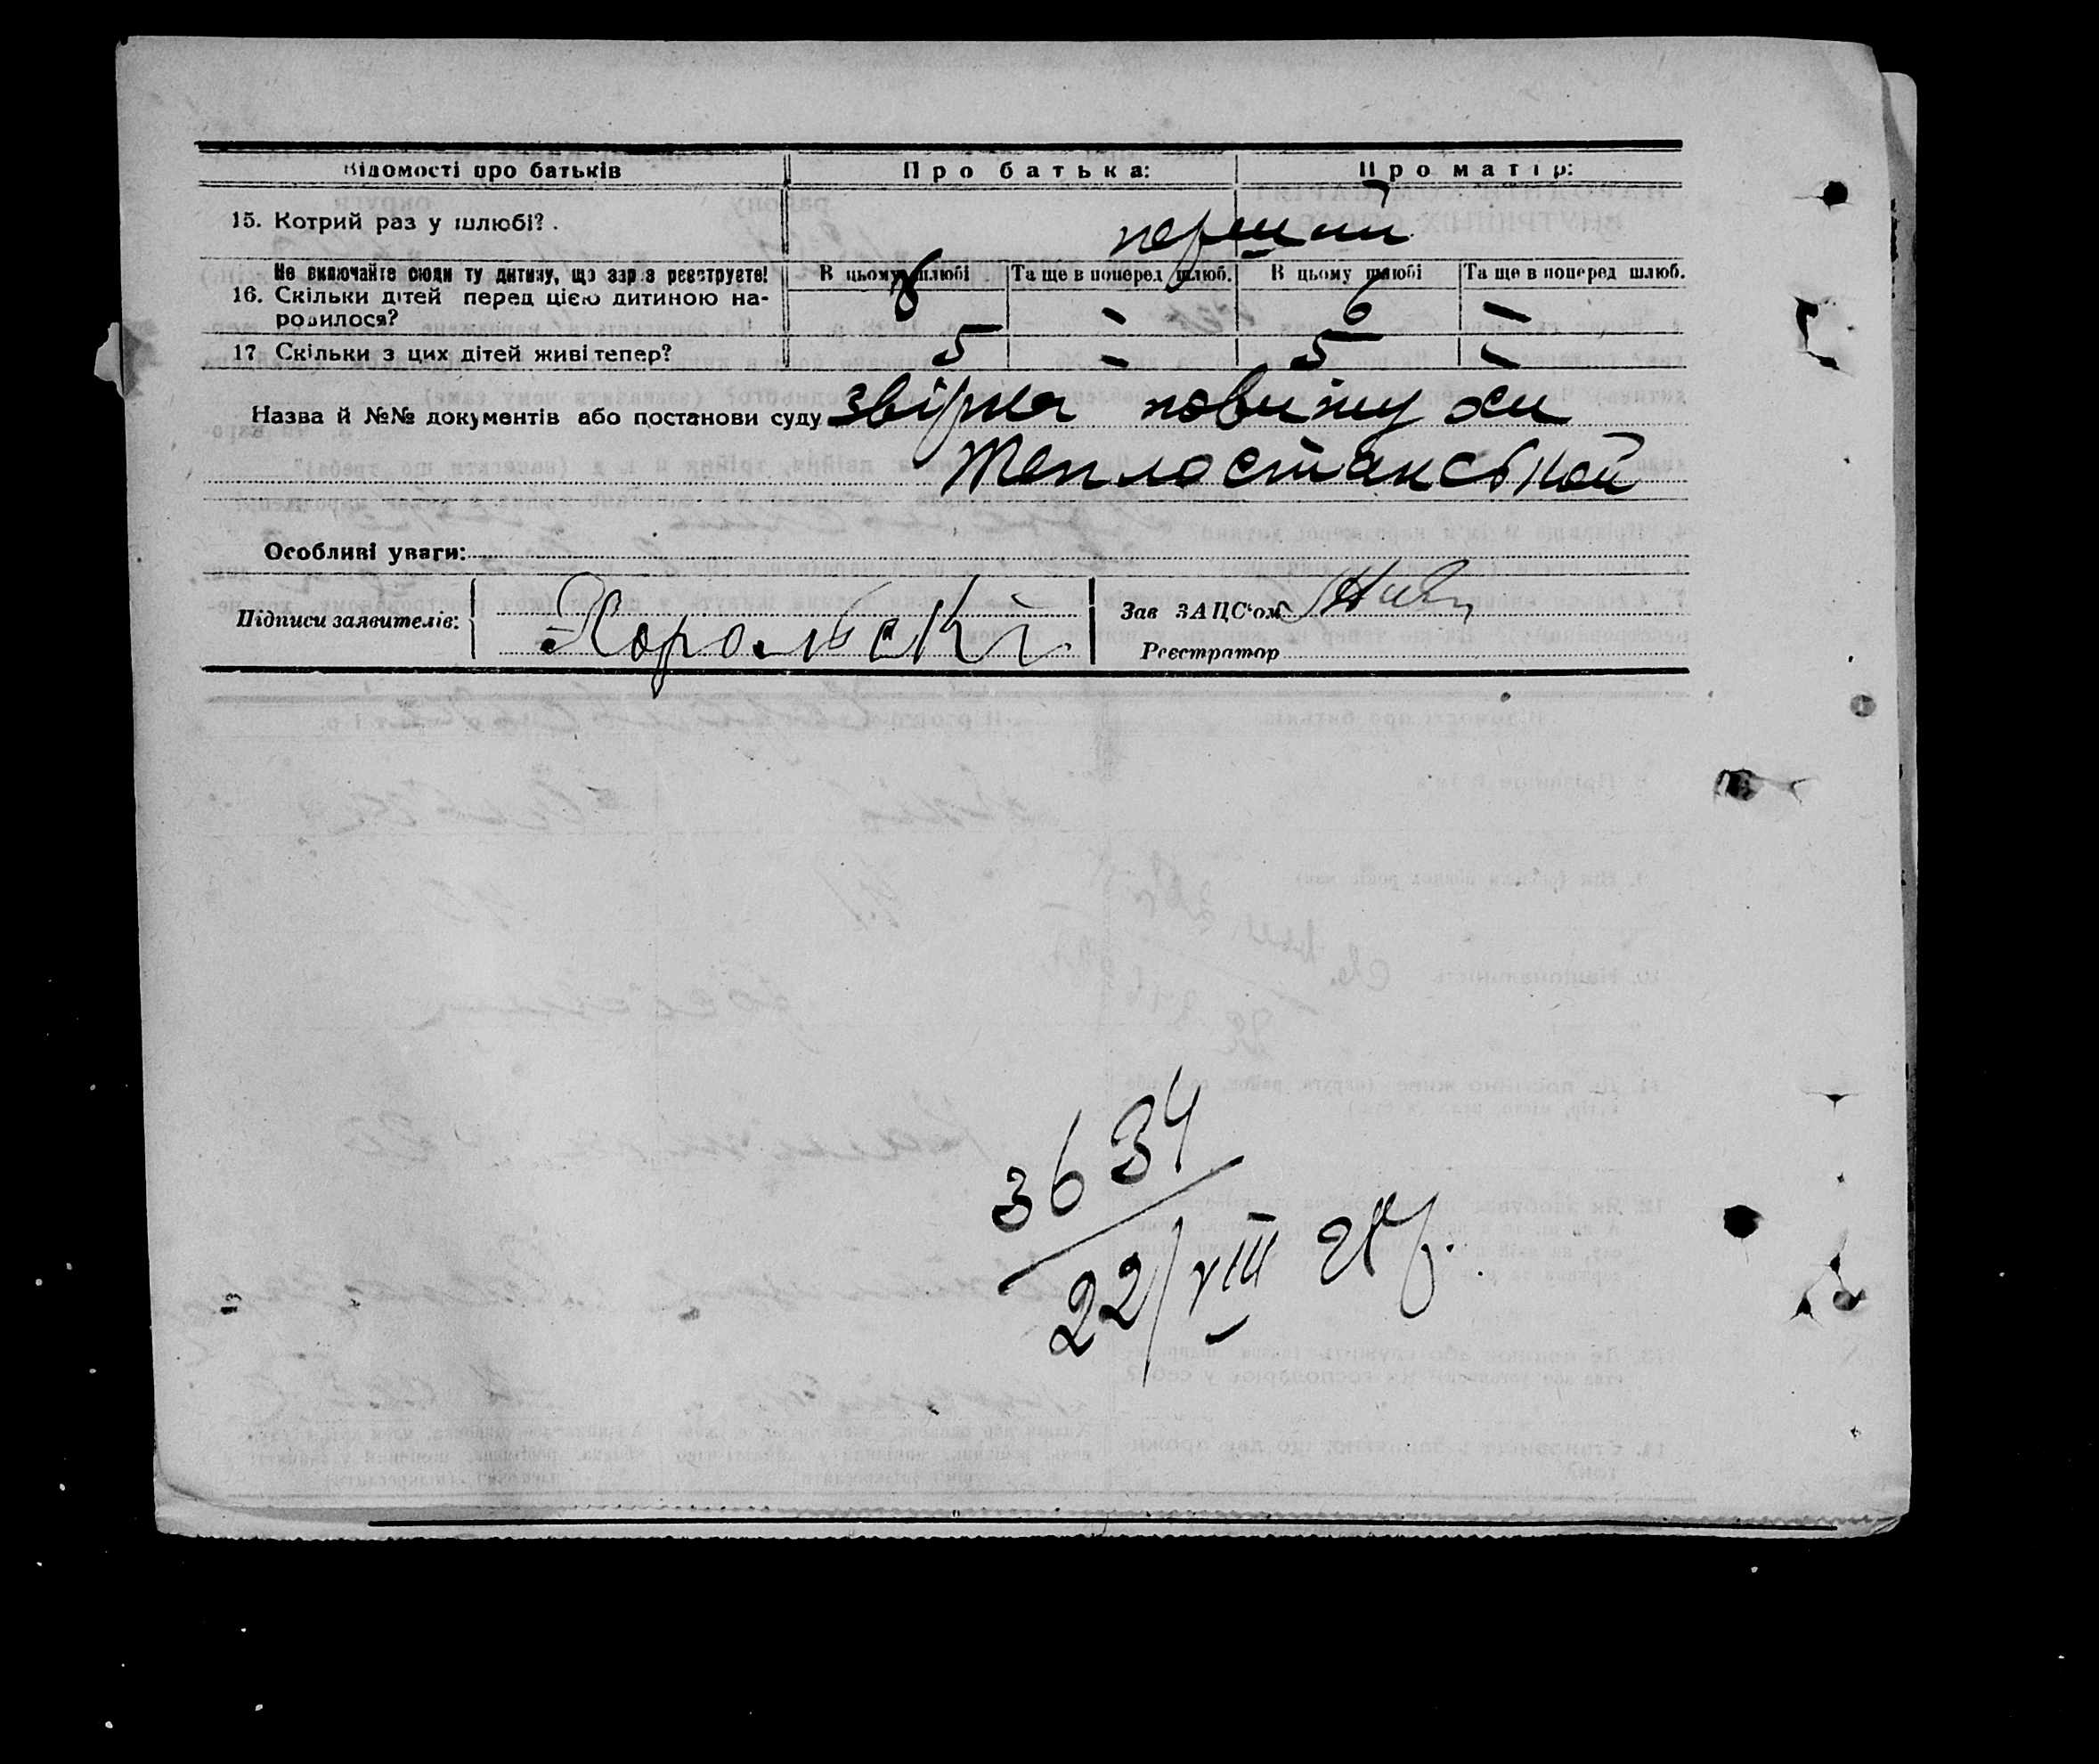 Відомості про батьків Про батька: Про матір:
15. Котрий раз у шлюбі? . перший
Не включайте сюди ту дитину, що зараз реєструєте! В цьому шлюбі Та ще в поперед шлюб. В цьому шлюбі Та ще в поперед шлюб.
16. Скільки дітей перед цією дитиною на-
родилося? 6 - 6 -
17 Скільки з цих дітей живі тепер? 5 - 5 -
Назва й №№ документів або постанови суду звірка
Теплостанській
Особливі уваги:
Підписи заявителів: Хорольскі Зав ЗАЦС'ом
Реєстратор
3634
22/VIII 28 р.